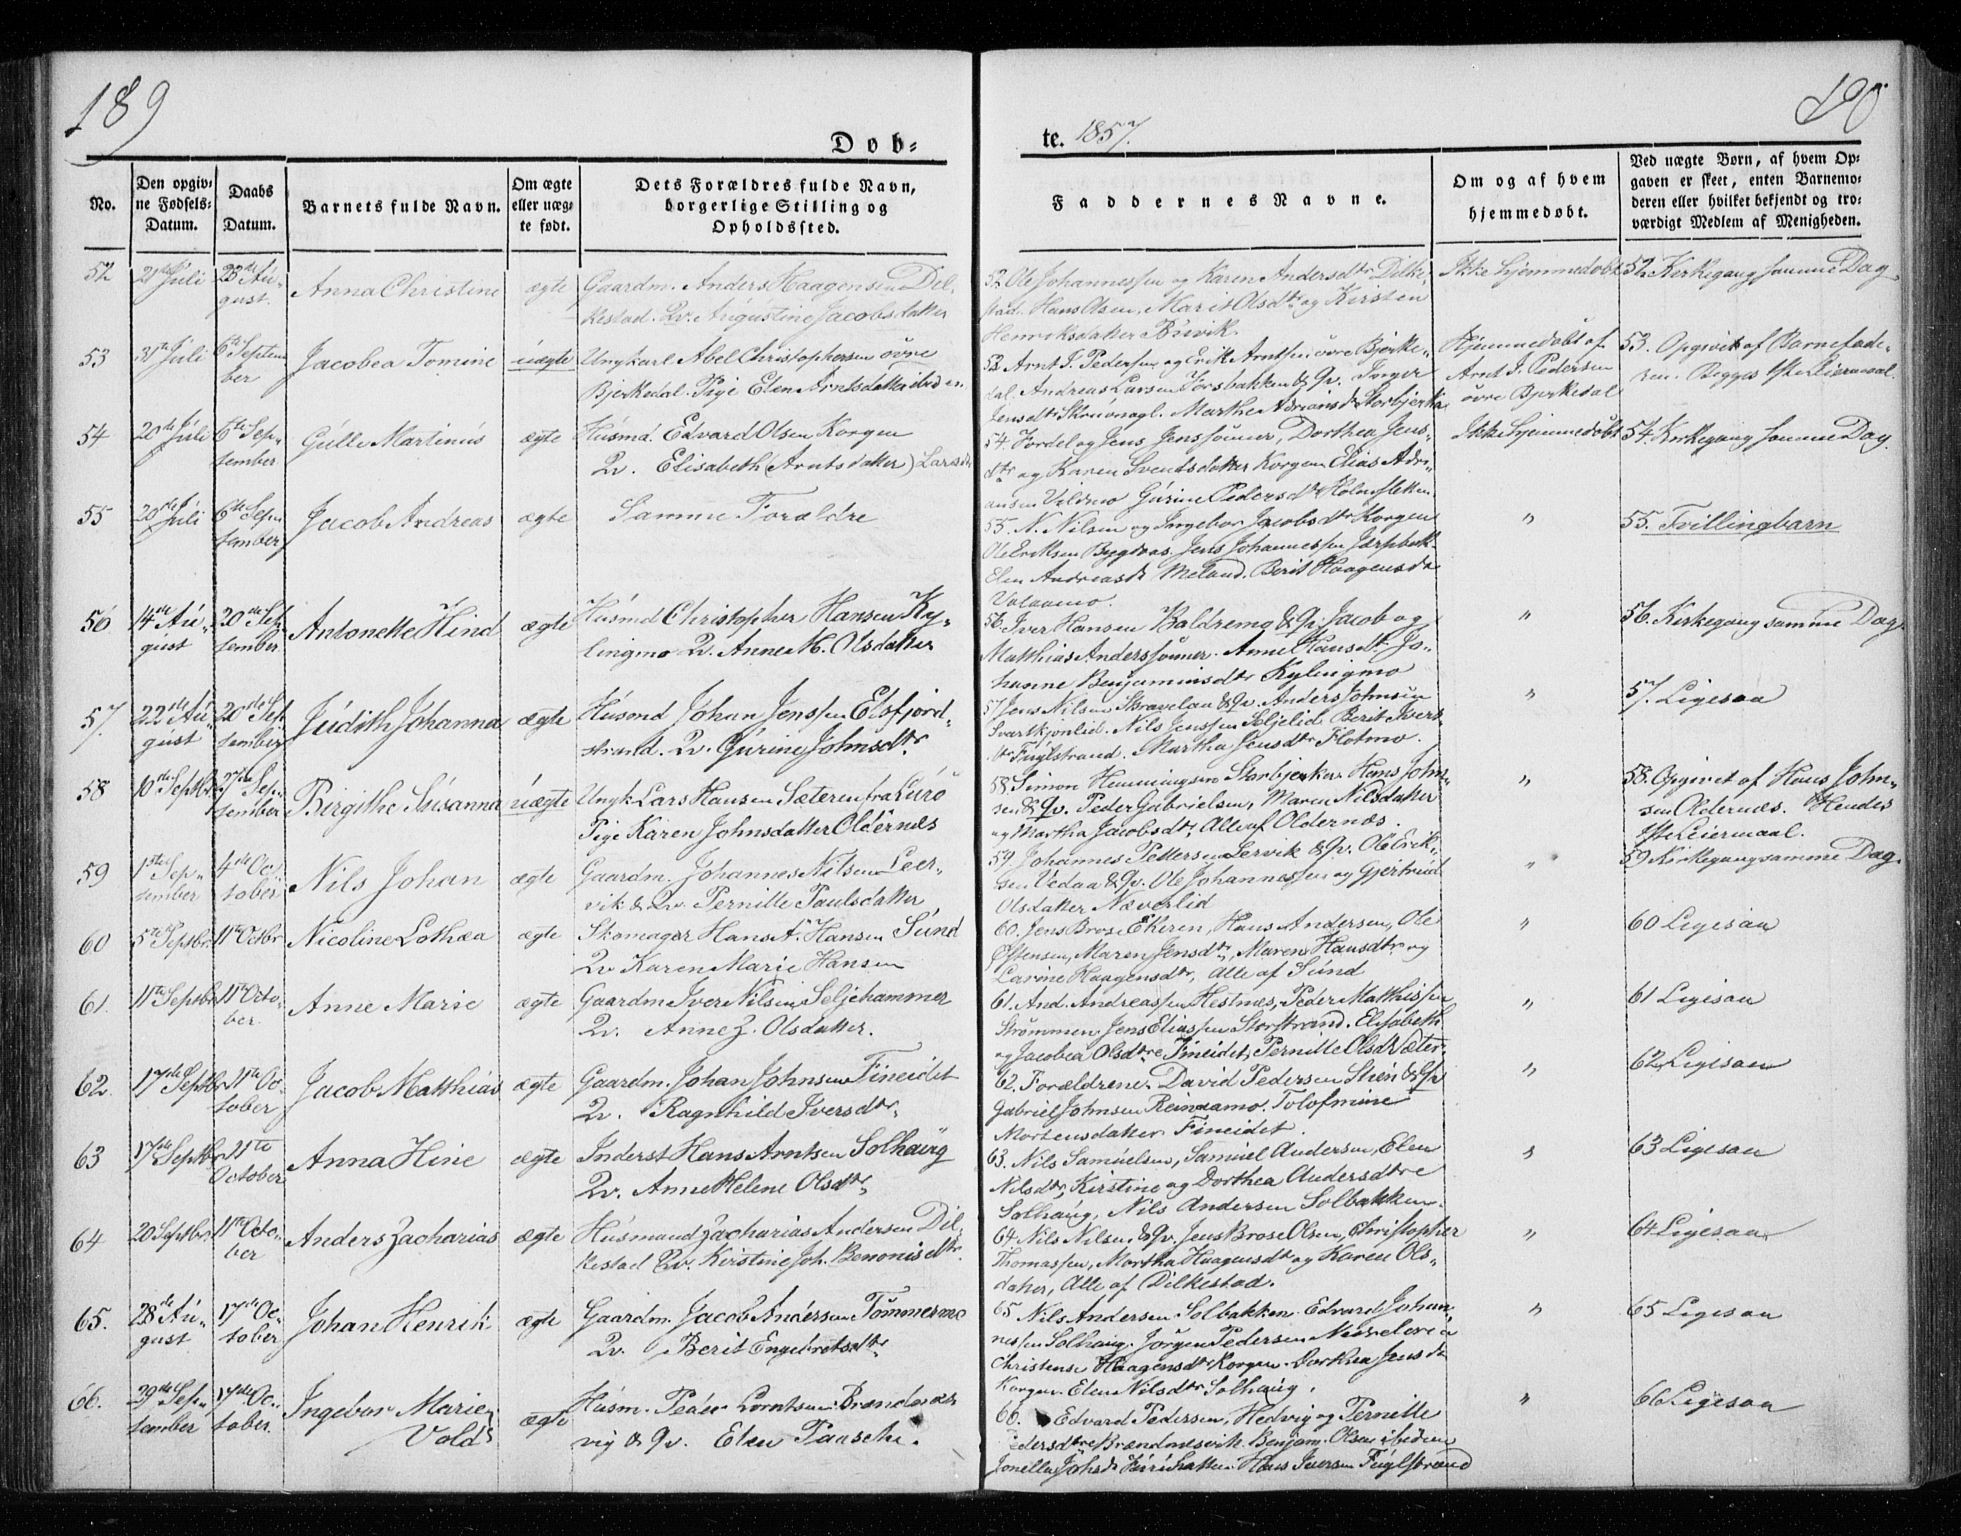 189
190
Døb-
te. 1857.
No.
Den opgiv-
ne Fødsels-
Datum.
Daabs
Datum.
Barnets fulde Navn.
Om ægte
eller uæg-
te født.
Dets Forældres fulde Navn,
borgerlige Stilling og
Opholdssted.
Faddernes Navne.
Om og af hvem
hjemmedøbt.
Ved uægte Børn, af hvem Op-
gaven er skeet, enten Barnemo-
deren eller hvilket bekjendt og tro-
værdigt Medlem af Menigheden.
52
21de Juli
23de Au-
gust.
Anna Christine
ægte
Gaardm. Anders Haagensen Dil-
kestad. Qv. Augustine Jacobsdatter
52 Ole Johannessen og Karen Andersdtr Dilke-
stad. Hans Olsen, Marit Olsdtr og Kirsten
Henriksdatter Brivik.
Ikke hjemmedøbt
52 Kirkegang samme Dag
53
31te Juli
6te Septem
ber
Jacobea Tomine
uægte
Ungkarl Abel Christophersen övre
Bjerkedal. Pige Elen Arntsdatter ibiden
53 Arnt J. Pedersen og Erik Arntsen övre Bjerke-
dal. Andreas Larsen Forsbakken & Qv. Inger
Jensdtr Marthe Adriansdtr Storbjerka
Hjemmedøbt af
Arnt J. Pedersen
övre Bjerkedal
53. Opgivet af Barnefade-
ren. Begges 1ste Leiermaal.
54
20de Juli
6te Sep-
tember
Gulle Martinus
ægte
Husmd. Edvard Olsen Korgen
Qv. Elisabeth (Arntsdatter) Larsdtr
54. Fordel og Jens Jenssönner, Dorthea Jens-
dtr og Karen Sventsdatter Korgen Elias Adri-
ansen Veldmo Gurine Pedersdtr Holmsletten
Ikke hjemmedøbt
54. Kirkegang samme Dag.
55
20de Juli
6te Sep-
tember
Jacob Andreas
ægte
Samme Forældre
55. N. Nilsen og Ingebor Jacobsdtr Korgen
Ole Eriksen Bygdaas. Jens Johannessen
Elen Andreasdtr Meland. Berit Haagensdtr
"
55. Tvillingbarn
56
14de Au-
gust
20de Sep
tember
Antonette Hind
ægte
Husmd Christopher Hansen Ky-
lingmo Qv. Anne M. Olsdatter
56 Iver Hansen Baldremo & Qv. Jacob og
Matthias Anderssönner. Anne Hansdtr Jo-
hanne Benjaminsdtr Kylingmo
"
56. Kirkegang samme Dag
57.
22de Au-
gust
20de Sep
tember
Judith Johanna
ægte
Husmd Johan Jenssen Elsfjord-
strand. Qv. Gurine Johnsdtr.
57 Jens Nilsen Skravelan & Qv. Anders Johnsen
Svartkjønlid. Nils Jenssen Seljelid Berit Ivers-
dtr Fuglstrand. Martha Jensdtr Flotmo.
"
57. Ligesaa
58
10de Septbr
27de Sep-
tember
Birgithe Susanna
uægte
Ungk. Lars Hansen Sæteren fra Lurö
Pige Karen Johnsdatter Oldernæs
58 Simon Henningsen Storbjerka Hans John-
sen & Qv. Peder Gabrielsen, Maren Nilsdatter
og Martha Jacobsdtr. Alle af Oldernæs.
"
58. Opgivet af Hans John-
sen Oldernæs. Hendes
1ste Leiermaal.
59
1ste Sep-
tember
4de Oc-
tober
Nils Johan
ægte
Gaardm. Johannes Nilsen Leer-
vik & Qv. Pernille Paulsdatter
59. Johannes Pettersen Lervik & Qv. Ole Erik-
sen Vedaa & Qv. Ole Johannessen og Gjertrud
Olsdatter Næverlid
"
59 Kirkegang samme Dag.
60
5te Septbr
11te Octbr
Nicoline Lothea
ægte
Skomager Hans A. Hansen Sund
Qv Karen Marie Hansen
60. Jens Brose Ekeren, Hans Andersen, Ole
Østensen, Maren Jensdtr, Maren Hansdtr og
Carine Haagensdtr, Alle af Sund
"
60 Ligesaa
61.
11te Septbr
11te Octo-
ber.
Anne Marie
ægte
Gaardm. Iver Nilsen Seljehammer
Qv. Anne Z. Olsdatter.
61. And. Andreassen Hestnes, Peder Matthissen
Strømmen. Jens Eliassen Storstrand. Elisabeth
og Jacobea Olsdtre Fineidet, Pernille Olsdtr Sæter-
"
61 Ligesaa
62.
17de Septbr
11te Oc
tober
Jacob Matthias
ægte
Gaardm. Johan Johnsen Fineidet
Qv. Ragnhild Iversdtr.
62. Forældrene. David Pedersen Stien & Qv
Gabriel Johnsen Reinaamo. Tolofmine
Mortensdatter Fineidet.
"
62 Ligesaa
63
17de Septbr
11te
October
Anna Hine
ægte
Inderst Hans Arntsen Solhaug
Qv. Anne Helene Olsdtr.
63. Nils Samuelsen, Samuel Andersen, Elen
Nilsdtr, Kirstine og Dorthea Andersdtre
Solhaug, Nils Andersen Solbakken.
"
63 Ligesaa
64
20 Septbr
11te Octo-
ber
Anders Zacharias
ægte
Husmand Zacharias Andersen Dil-
kestad Qv. Kirstine Joh. Benonisdtr.
64 Nils Nilsen & Qv. Jens Brose Olsen, Christopher
Thomassen, Martha Haagensdtr og Karen Ols-
datter, Alle af Dilkestad.
"
64 Ligesaa
65.
28de Au-
gust
17de Oc-
tober
Johan Henrik
ægte
Gaardm. Jacob Andersen Tømmermo
Qv. Berit Engebretsdtr.
65 Nils Andersen Solbakken. Edvard Johan-
nessen Solhaug. Jørgen Pedersen
Christense Haagensdtr Korgen. Dorthea Jensdtr
Korgen. Elen Nilsdtr Solhaug.
"
65 Ligesaa
66.
29de Sep-
tember
17de Oc-
tober.
Ingebor Marie
Vold
ægte
Husm. Peder Lorntsen Brændnæs
vig & Qv. Elen Paasche.
66. Edvard Pedersen, Hedvig og Pernille
Pedersdtre Brændnesvik. Benjam. Olsen ibiden
Hans Iversen Fuglstrand
"
66 Ligesaa